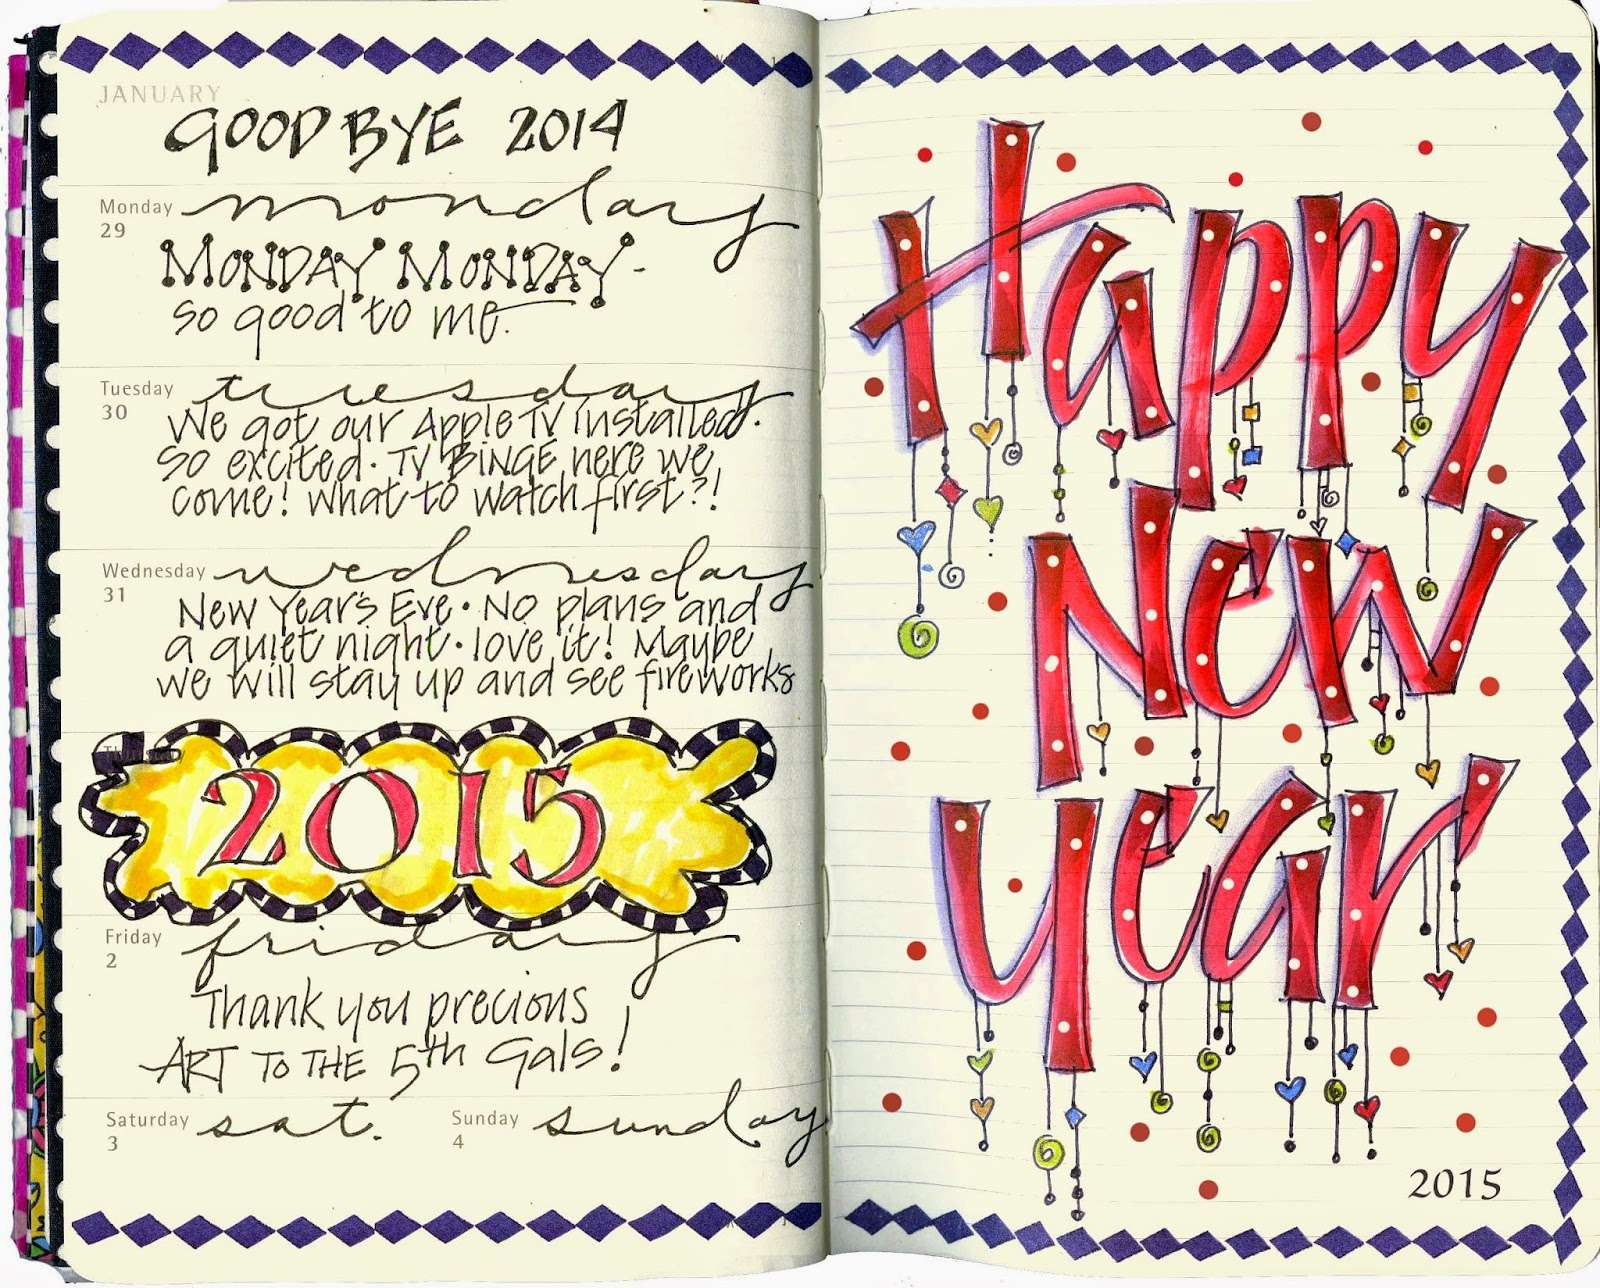 JANUARY
GOODBYE 2014
Monday
29
monday
MONDAY MONDAY-
so good to me.
Tuesday
30
tuesday
We got our Apple TV installed.
So excited. TV BINGE here we
come! What to watch first?!
Wednesday
31
wednesday
New Year's Eve • No plans and
a quiet night • love it! Maybe
we will stay up and see fireworks
Thursday
2015
Friday
2
friday
Thank you precious
ART TO THE 5th Gals!
Saturday
3
sat.
Sunday
4
sunday
Happy
New
Year
2015